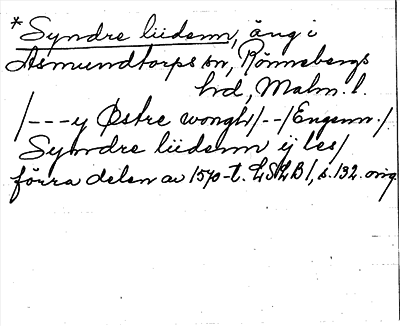 *Syndre liidenn, äng i
Asmundtorps sn, Rönnebergs
hd, Malm. l.
/---y Østre wongh/--/Engenn/
Syndre liidenn ij les/
förra delen av 1570-t. LSLB 1, s. 132. orig.